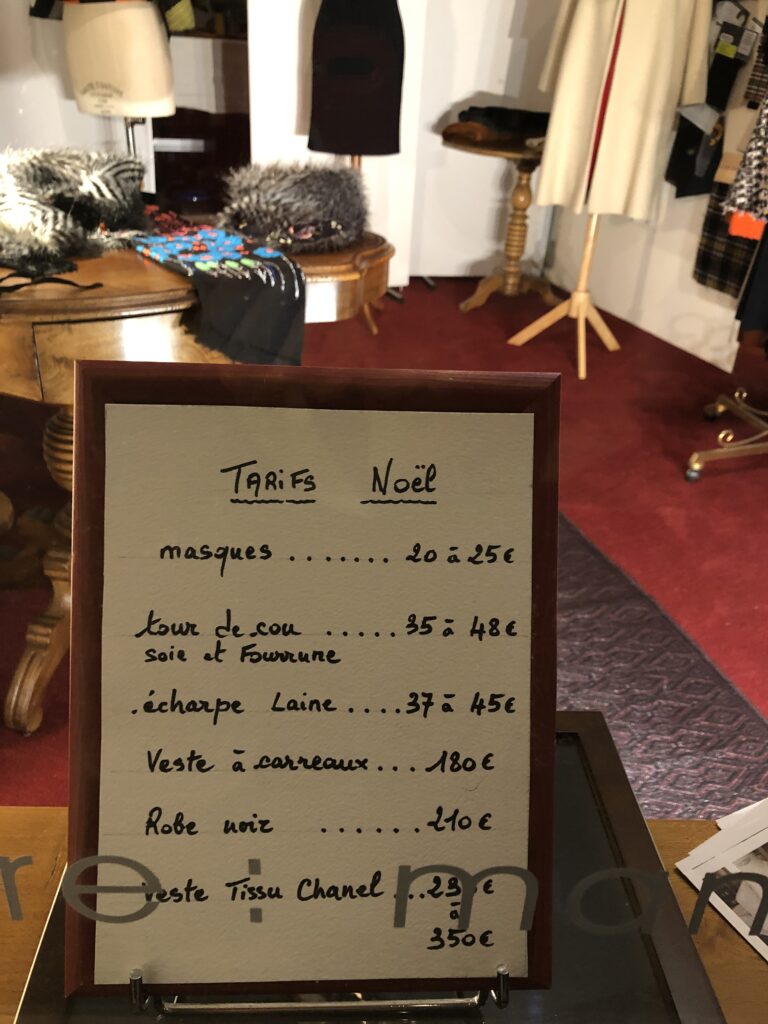 TARIFS Noël
masques ....... 20 à 25€
tour de cou ..... 35 à 48€
soie et Fourrune
.écharpe Laine .... 37 à 45€
Veste à carreaux... 180€
Robe noir ...... 210€
veste Tissu Chanel ...
à
350€
re : man